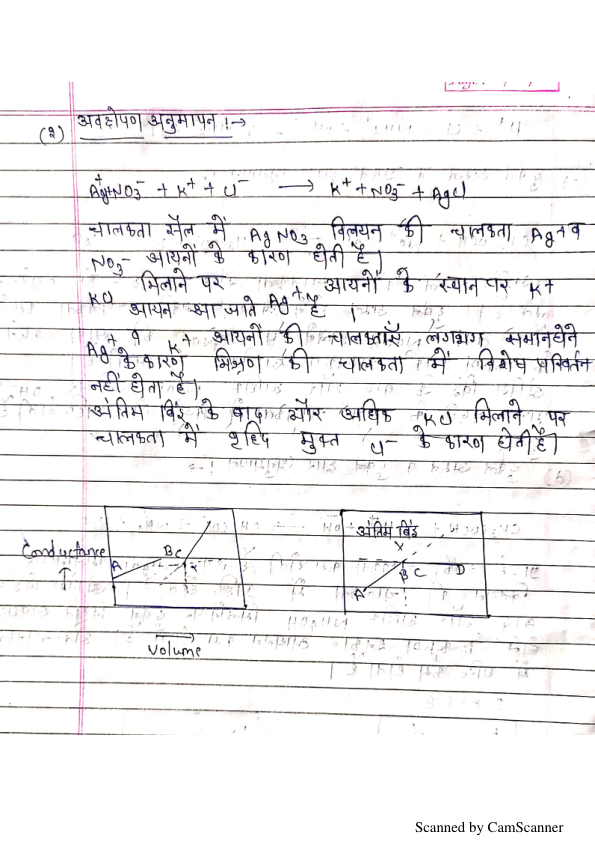 (२) अवक्षेपण अनुमापन :→
Ag⁺+NO₃⁻ + K⁺ + Cl⁻ → K⁺ + NO₃⁻ + AgCl
चालकता सैल में AgNO₃ विलयन की चालकता Ag+ व
NO₃⁻ आयनों के कारण होती है।
KCl मिलाने पर Ag⁺ आयनों के स्थान पर K+
आयन आ जाते है ।
Ag⁺ व K⁺ आयनों की चालकताएँ लगभग समान होने
के कारण मिश्रण की चालकता में विशेष परिवर्तन
नहीं होता है।
अंतिम बिंदु के बाद और अधिक KCl मिलाने पर
चालकता में वृद्धि मुक्त Cl⁻ के कारण होती है।
Conductance ↑
A B C x
Volume →
अंतिम बिंदु
X
A B C D
Scanned by CamScanner